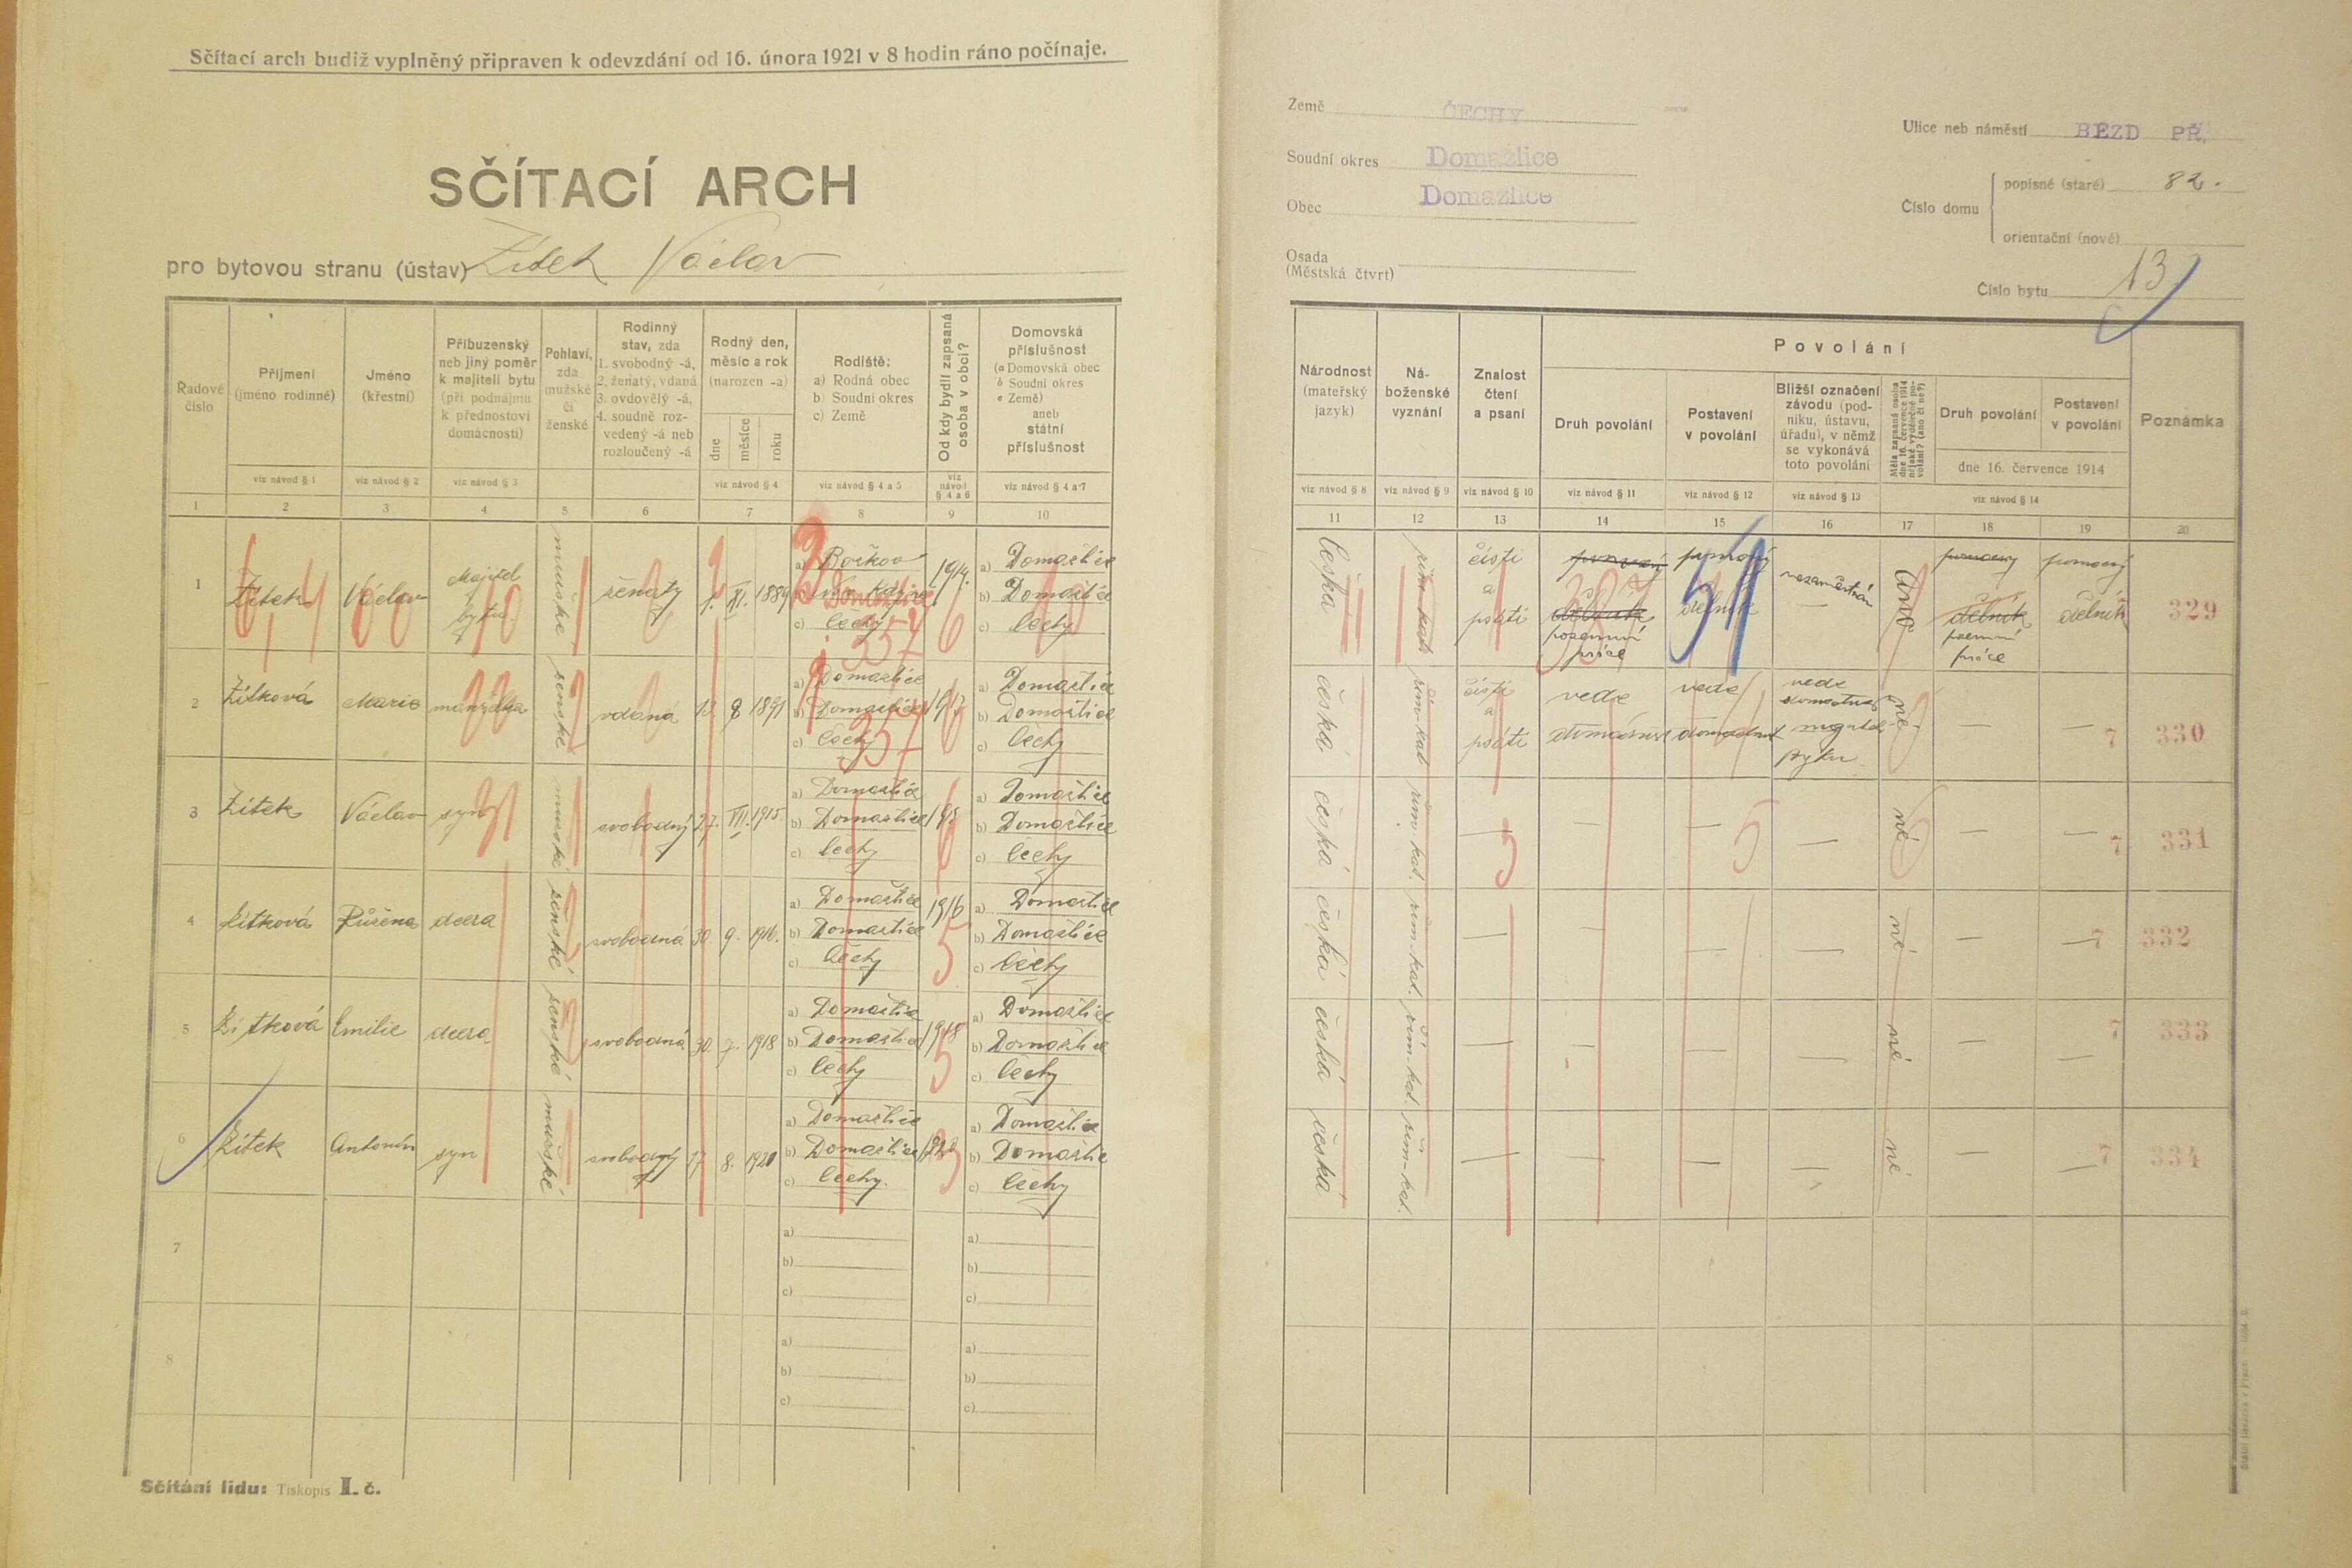 Sčítací arch budiž vyplněný připraven k odevzdání od 16. února 1921 v 8 hodin ráno počínaje.
SČÍTACÍ ARCH
pro bytovou stranu (ústav) Žítek Václav
Řadové číslo
Příjmení (jméno rodinné)
Jméno (křestní)
Příbuzenský neb jiný poměr k majiteli bytu (při podnájmu k přednostovi domácnosti)
Pohlaví, zda mužské či ženské
Rodinný stav, zda 1. svobodný -á, 2. ženatý, vdaná 3. ovdovělý -á, 4. soudně rozvedený -á neb rozloučený -á
Rodný den, měsíc a rok (narozen -a)
dne měsíce roku
Rodiště: a) Rodná obec b) Soudní okres c) Země
Od kdy bydlí zapsaná osoba v obci?
Domovská příslušnost (a Domovská obec b Soudní okres c Země) aneb státní příslušnost
viz návod § 1 viz návod § 2 viz návod § 3 viz návod § 4 viz návod § 4 a 5 viz návod § 4 a 6 viz návod § 4 a 7
1 2 3 4 5 6 7 8 9 10
1 Žítek Václav Majitel bytu mužské ženatý 7. XI. 1889 a) Bořkov b) c) Čechy 1914. a) Domažlice b) Domažlice c) Čechy
2 Žítková Marie manželka ženské vdaná 12. 8 1891 a) Domažlice b) Domažlice c) Čechy a) Domažlice b) Domažlice c) Čechy
3 Žítek Václav syn mužské svobodný 27. 1915. a) Domažlice b) Domažlice c) Čechy 1915 a) Domažlice b) Domažlice c) Čechy
4 Žítková Růžena dcera ženské svobodná 30. 9. 1916. a) Domažlice b) Domažlice c) Čechy 1916 a) Domažlice b) Domažlice c) Čechy
5 Žítková Emilie dcera ženské svobodná 30. 7. 1918 a) Domažlice b) Domažlice c) Čechy 1918 a) Domažlice b) Domažlice c) Čechy
6 Žítek Antonín syn mužské svobodný 17. 8. 1920 a) Domažlice b) Domažlice c) Čechy. a) Domažlice b) Domažlice c) Čechy
7 a) b) c) a) b) c)
8 a) b) c) a) b) c)
Sčítání lidu: Tiskopis I. č.
Země ČECHY
Soudní okres Domažlice
Obec Domažlice
Osada (Městská čtvrť)
Ulice neb náměstí BEZD PŘ.
Číslo domu
popisné (staré) 82.
orientační (nové)
Číslo bytu 13
Národnost (mateřský jazyk)
Náboženské vyznání
Znalost čtení a psaní
Povolání
Druh povolání
Postavení v povolání
Bližší označení závodu (podniku, ústavu, úřadu), v němž se vykonává toto povolání
Měla zapsaná osoba dne 16. července 1914 nějaké výdělečné povolání? (ano či ne?)
Druh povolání
Postavení v povolání
dne 16. července 1914
Poznámka
viz návod § 8 viz návod § 9 viz návod § 10 viz návod § 11 viz návod § 12 viz návod § 13 viz návod § 14
11 12 13 14 15 16 17 18 19 20
česká řím-kat čísti a psáti pomocný dělník pozemní práce 387 pomocný dělník nezaměstnán — ano pomocný dělník pozemní práce pomocný dělník 329
česká řím-kat čísti a psáti vede domácnost vede domácnost vede domácnost majitele bytu ne — — 7 330
česká řím-kat. — — — — ne — — 7 331
česká řím-kat. — — — — ne — — 7 332
česká řím-kat. — — — — ne — — 7 333
česká řím-kat. — — — — ne — — 7 334